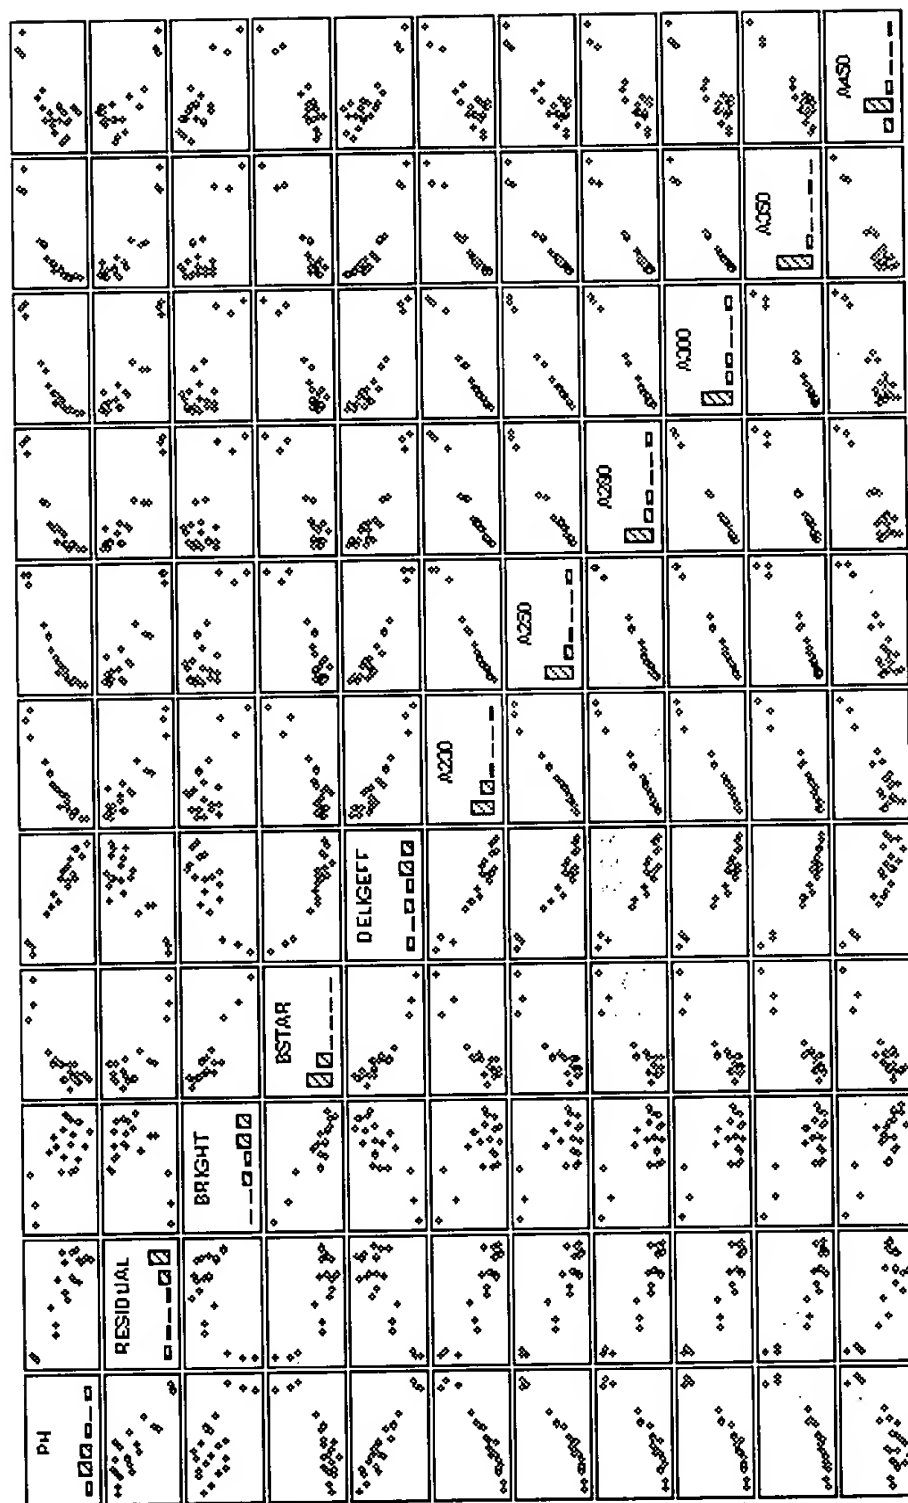 PH
RESIDUAL
BRIGHT
BSTAR
DELIGEFF
A230
A250
A280
A300
A350
A450